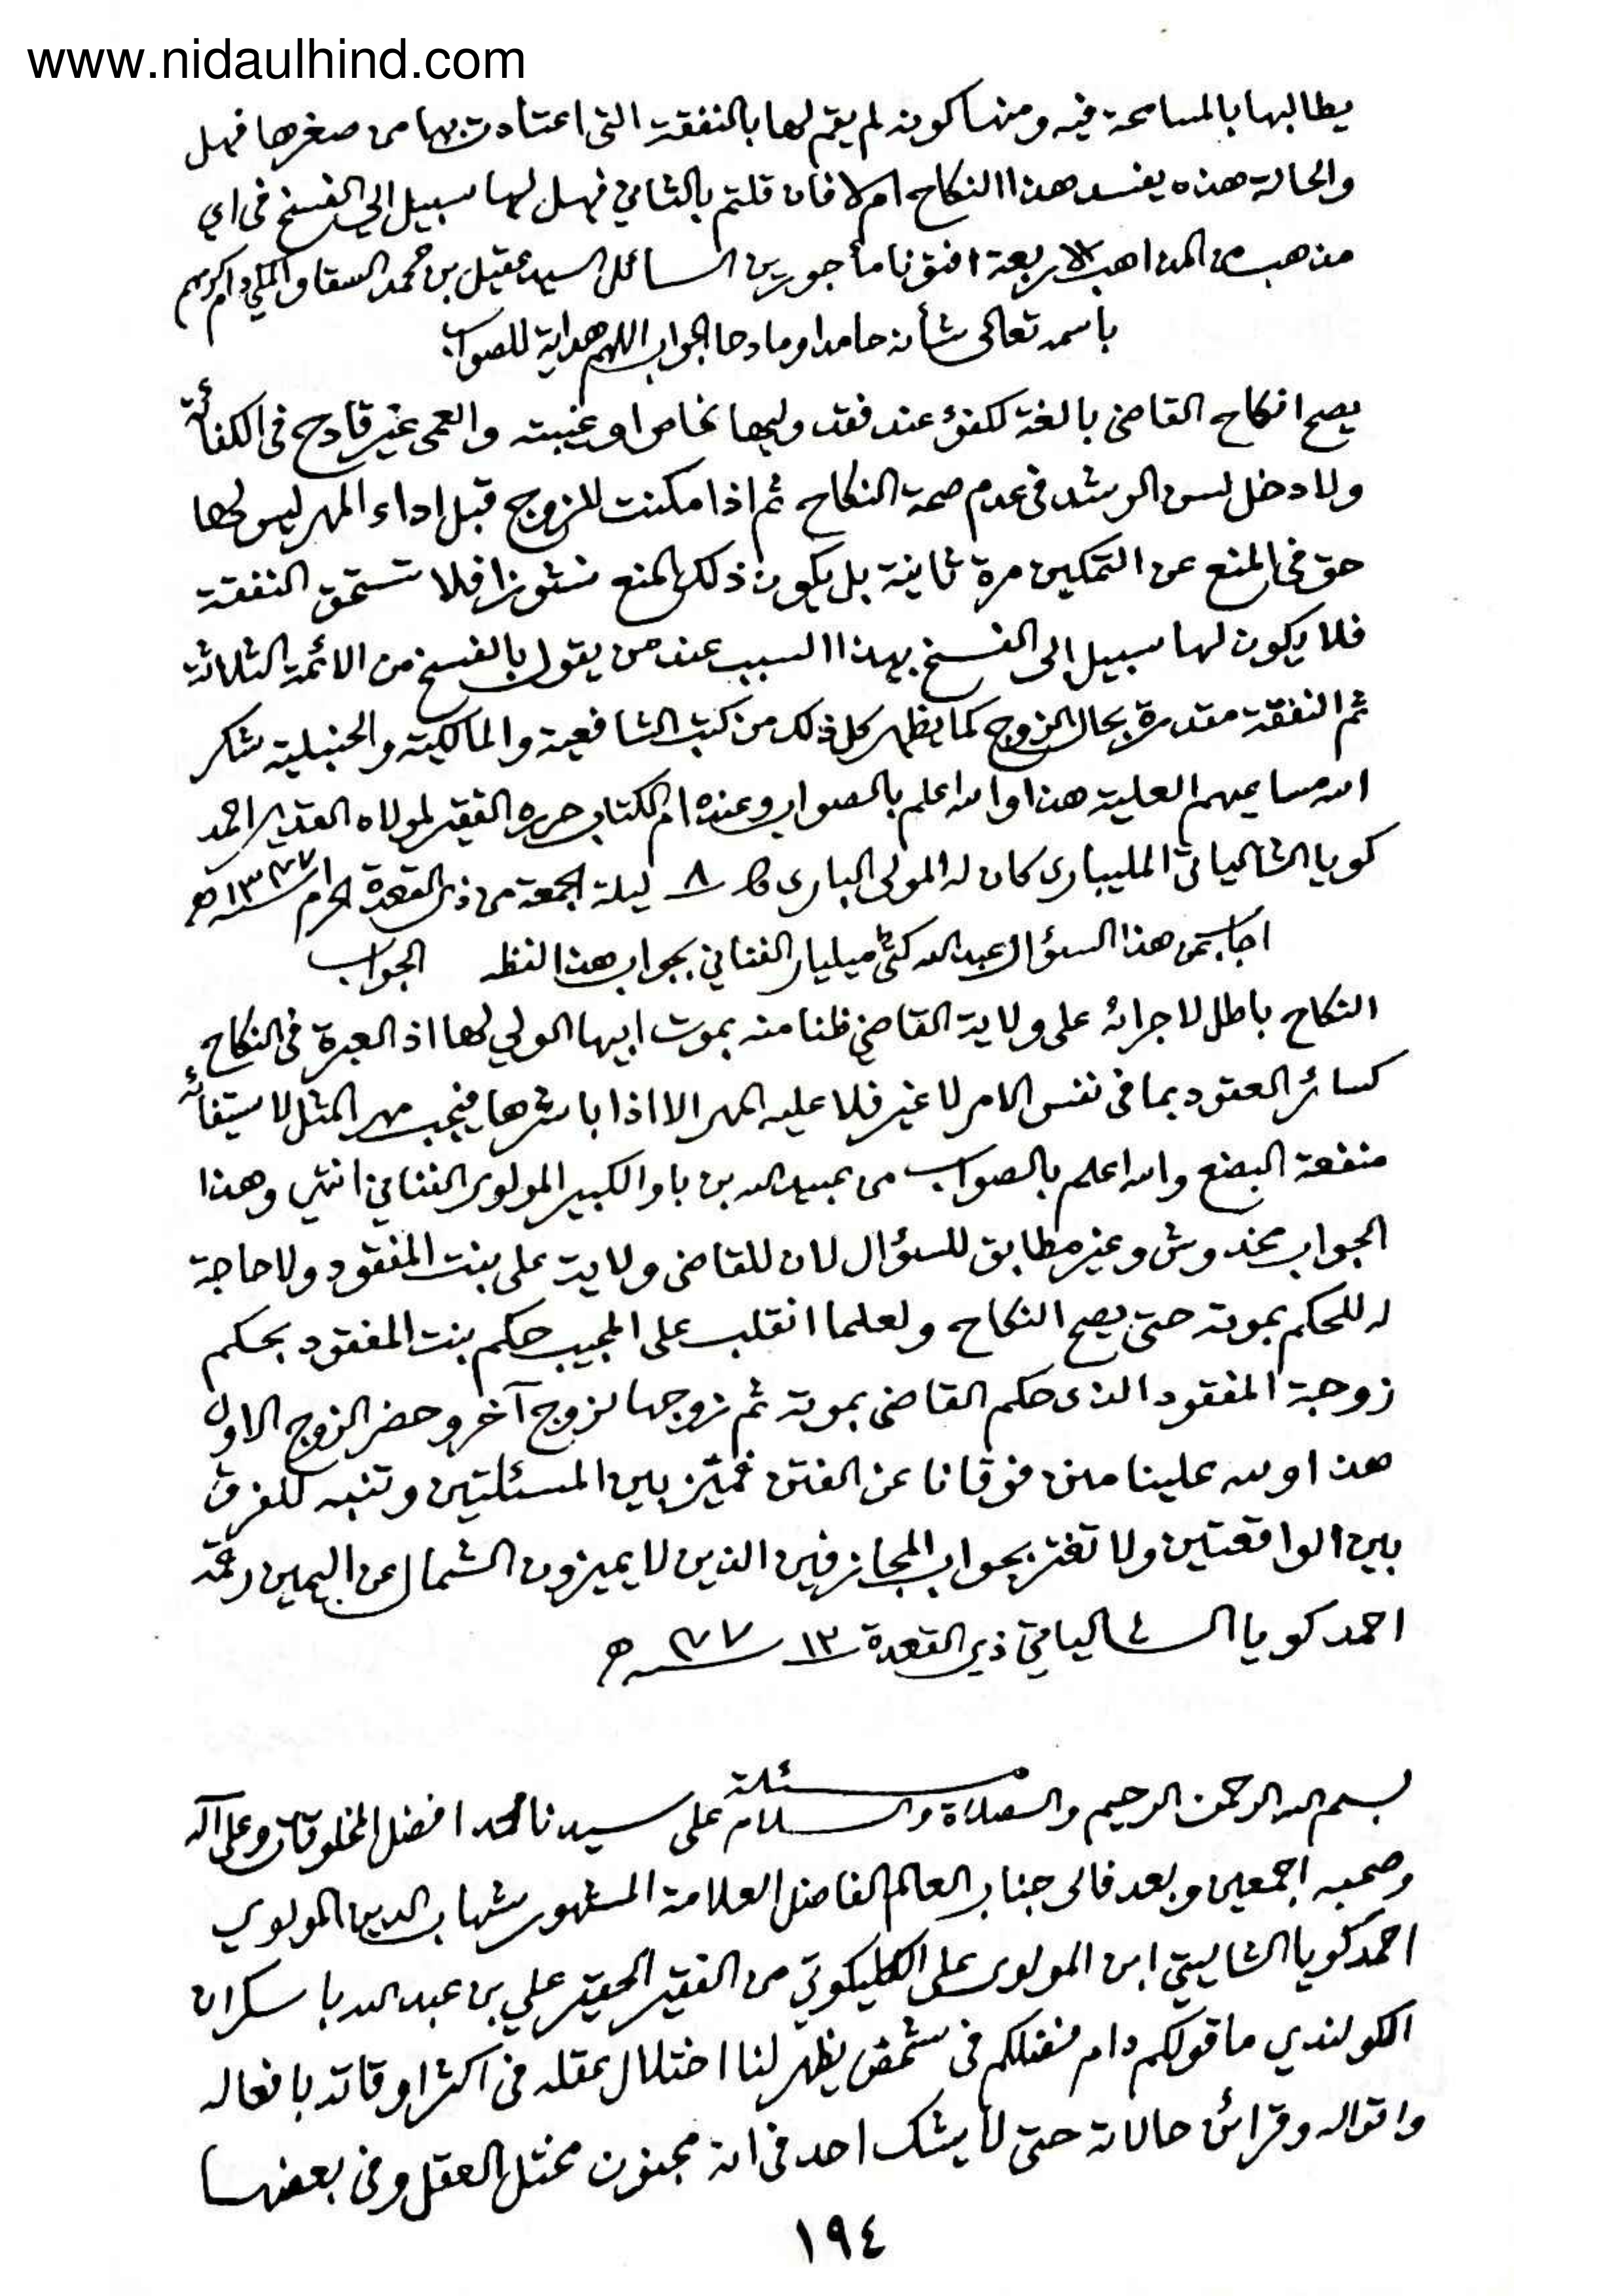 www.nidaulhind.com
يطالبها بالمسامحة فيه ومنها كونه لم يقم لها بالنفقة التي اعتادت بها من صغرها فهل
والحالة هذه يفسد هذا النكاح ام لا فان قلتم بالثاني فهل لها سبيل الى الفسخ في اي
مذهب من المذاهب الاربعة افتونا مأجورين السائل السيد عقيل بن محمد السقاف المكي دام كريم
باسمه تعالى شأنه حامدا ومادحا الجواب اللهم هداية للصواب
يصح انكاح القاضي بالغة لكفؤ عند فقد وليها الخاص او غيبته والعمى غير قادح في الكفائة
ولا دخل لسن الرشد في عدم صحة النكاح ثم اذا مكنت للزوج قبل اداء المهر ليس لها
حق في المنع عن التمكين مرة ثانية بل يكون ذلك المنع نشوزا فلا تستحق النفقة
فلا يكون لها سبيل الى الفسخ بهذا السبب عند من يقول بالفسخ من الائمة الثلاثة
ثم النفقة مقدرة بحال الزوج كما يظهر كل ذلك من كتب الشافعية والمالكية والحنبلية شكر
الله مساعيهم العلية هذا والله اعلم بالصواب وعنده ام الكتاب حرره الفقير لمولاه القدير احمد
كويا الشالياتي المليباري كان له المولى الباري ٨ ليلة الجمعة من ذي القعدة الحرام ١٣٧٧ هـ
اجاب عن هذا السؤال عبد الله كتي ميليار الفناني بجواب هذا لفظه الجواب
النكاح باطل لاجرائه على ولاية القاضي ظنا منه بموت ابيها الولي لها اذ العبرة في النكاح
كسائر العقود بما في نفس الامر لا غير فلا عليه المهر الا اذا باشرها فيجب مهر المثل لاستيفائه
منفعة البضع والله اعلم بالصواب من عبيد الله بن باوا لكبير المولوي الفناني انتهى وهذا
الجواب مخدوش وغير مطابق للسؤال لان للقاضي ولاية على بنت المفقود ولا حاجة
له للحكم بموته حتى يصح النكاح ولعلما انقلب على المجيب حكم بنت المفقود بحكم
زوجة المفقود الذي حكم القاضي بموته ثم زوجها لزوج آخر وحضر الزوج الاول
هذا ولله علينا منن فوقانا عن الفتن فميّز بين المسئلتين وتنبه للفرق
بين الواقعتين ولا تغتر بجواب المجازفين الذين لا يميزون الشمال عن اليمين رقمه
احمد كويا الشالياتي ذي القعدة ١٣٧٧ هـ
مسئلة
بسم الله الرحمن الرحيم والصلاة والسلام على سيدنا محمد افضل المخلوقات وعلى آله
وصحبه اجمعين وبعد فالى جناب العالم الفاضل العلامة المشهور شهاب الدين المولوي
احمد كويا الشاليتي ابن المولوي علي الكليكوتي من الفقير الحقير علي بن عبد الله باسكران
الكولندي ما قولكم دام فضلكم في شخص يظهر لنا اختلال عقله في اكثر اوقاته بافعاله
واقواله وقرائن حالاته حتى لا يشك احد في انه مجنون مختل العقل وفي بعضها
١٩٤